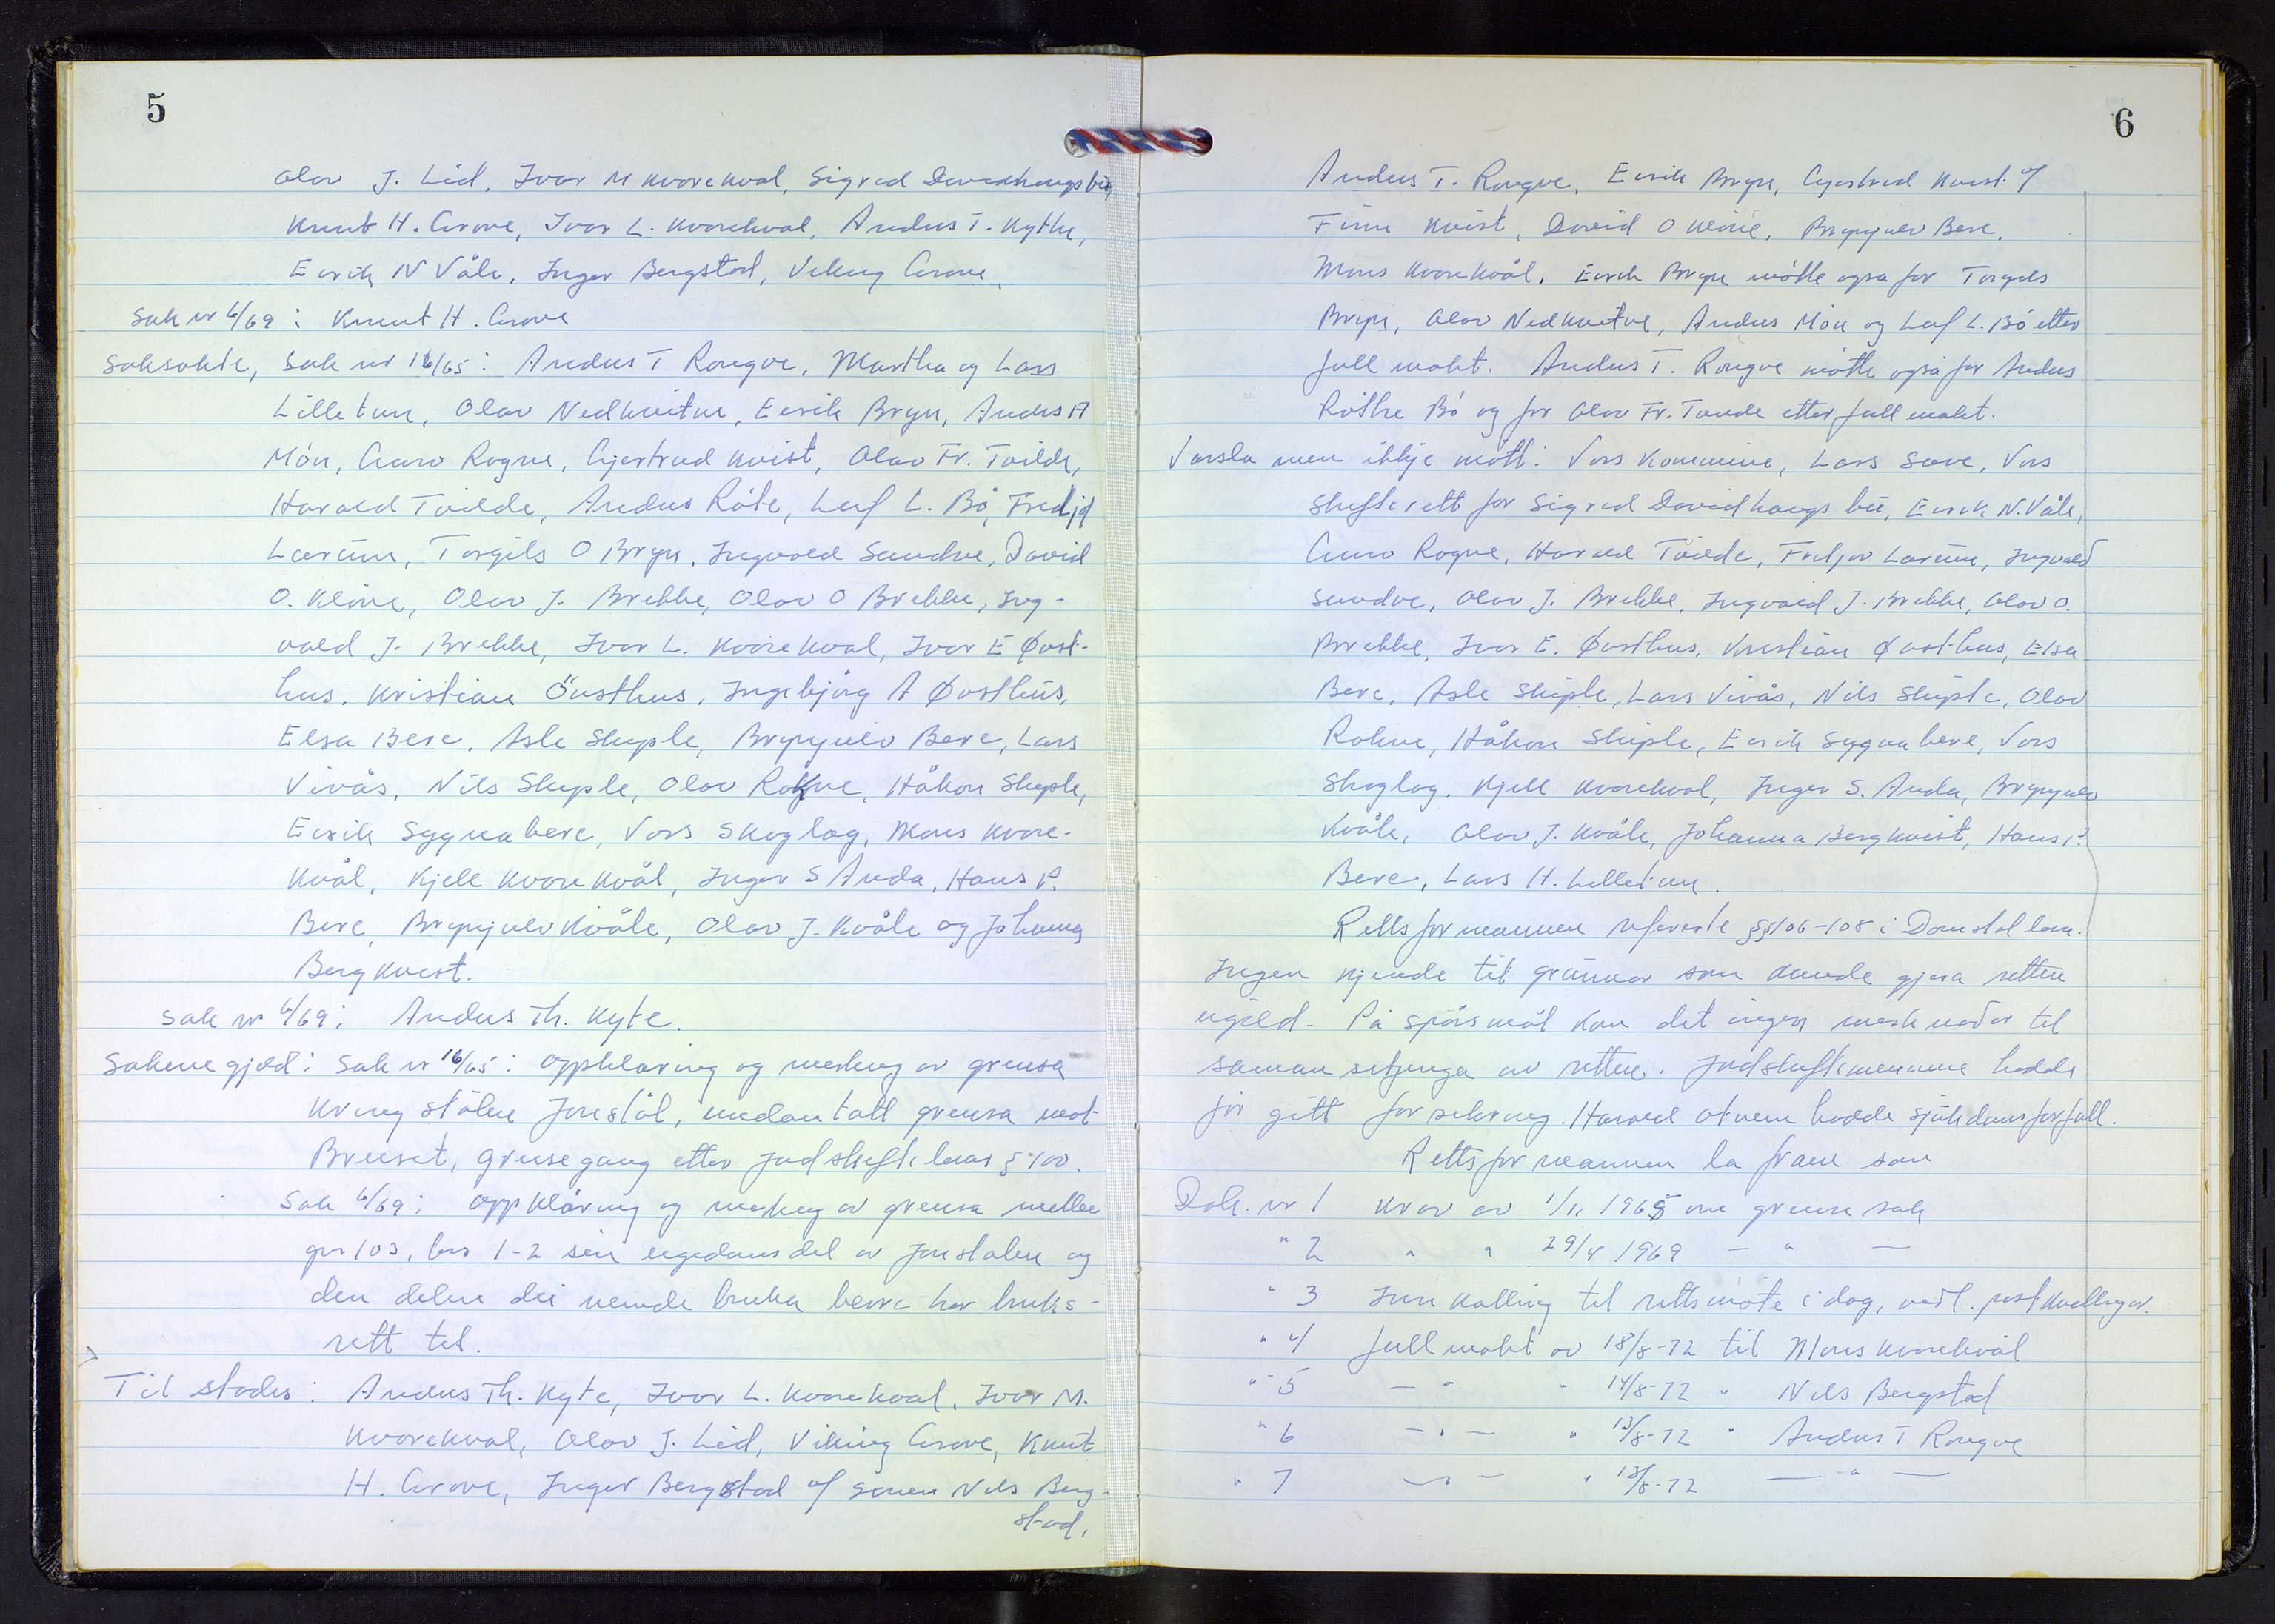 5
Olav J. Lid, Ivar M Kvorekval, Sigrid Davidhaugs bu,
Knut H. Grove, Ivar L. Kvorekval, Anders T. Kythe,
Eirik N Våle, Inger Bergstad, Viking Grove,
Sak nr 6/69: Knut H. Grove
Saksøkte, Sak nr 16/65: Anders T Rongve, Martha og Lars
Lilletun, Olav Nedkvitne, Eirik Bryn, Anders A
Møn, Guro Rogne, Gjertrud Kvist, Olav Fr. Tvilde,
Harald Tvilde, Anders Røte, Leif L. Bø, Fridtjof
Larüm, Torgils O Bryn, Ingvald Sundve, David
O. Kløve, Olav J. Brekke, Olav O Brekke, Ing-
vald J. Brekke, Ivar L. Kvorekval, Ivar E Øvst-
hus, Kristian Øvsthus, Ingebjørg A Øvsthus,
Elsa Bere, Asle Skiple, Brynjulv Bere, Lars
Vivås, Nils Skiple, Olav Rokne, Håkon Skiple,
Eirik Sygnabere, Voss Skoglag, Mons Kvore-
kvål, Kjell Kvorekvål, Inger S Anda, Hans P.
Bere, Brynjulv Kvåle, Olav J. Kvåle og Johanna
Bergkvist.
Sak nr 6/69: Anders Th. Kyte.
Sakene gjeld: Sak nr 16/65: Oppklaring og merking av grensa
kring stølen Jonstøl, undantatt grensa mot
Bruset, grensegang etter jordskiftelova § 100.
Sak 6/69: Oppklåring og merking av grensa mellom
gnr 103, bnr 1-2 sin eigedomsdel av Jonstølen og
den delen dei nemde bruka berre har bruks-
rett til.
Til stades: Anders Th. Kyte, Ivar L. Kvorekval, Ivar M.
Kvorekval, Olav J. Lid, Viking Grove, Knut
H. Grove, Inger Bergstad v/ sønen Nils Berg-
stad,
6
Anders T. Rongve, Eirik Bryn, Gjertrud Kvist v/
Finn Kvist, David O Kløve, Brynjulv Bere,
Mons Kvorekvål. Eirik Bryn møtte også for Torgils
Bryn, Olav Nedkvitne, Anders Møn og Leif L. Bø etter
fullmakt. Anders T. Rongve møtte også for Anders
Røthe Bø og for Olav Fr. Tvilde etter fullmakt.
Varsla men ikkje møtt: Voss Kommune, Lars Sove, Voss
skifterett for Sigrid Davidhaugs bu, Eirik N. Våle,
Guro Rogne, Harald Tvilde, Fridtjov Larüm, Ingvald
Sundve, Olav J. Brekke, Ingvald J. Brekke, Olav O.
Brekke, Ivar E. Øvsthus, Kristian Øvsthus, Elsa
Bere, Asle Skiple, Lars Vivås, Nils Skiple, Olav
Rokne, Håkon Skiple, Eirik Sygnabere, Voss
Skoglag, Kjell Kvorekval, Inger S. Anda, Brynjulv
Kvåle, Olav J. Kvåle, Johanna Bergkvist, Hans P.
Bere, Lars H. Lilletun.
Rettsformannen refererte §§ 106-108 i Domstollova.
Ingen kjende til grunnar som kunde gjera retten
ugild. På spørsmål kom det ingen merknader til
samansetjinga av retten. Jordskiftemennene hadde
før gitt forsikring. Harald hadde sjukdomsforfall.
Rettsformannen la fram som
Dok. nr 1 Krav av 1/11 1965 om grensesak
" 2 " " 29/4 1969 — " —
" 3 Innkalling til rettsmøte i dag, vedl. postkvitteringar.
" 4 Fullmakt av 18/8-72 til Mons Kvorekvål
" 5 — " — " 14/8-72 " Nils Bergstad
" 6 — " — " 13/8-72 " Anders T Rongve
" 7 — " — " 13/8-72 — " —